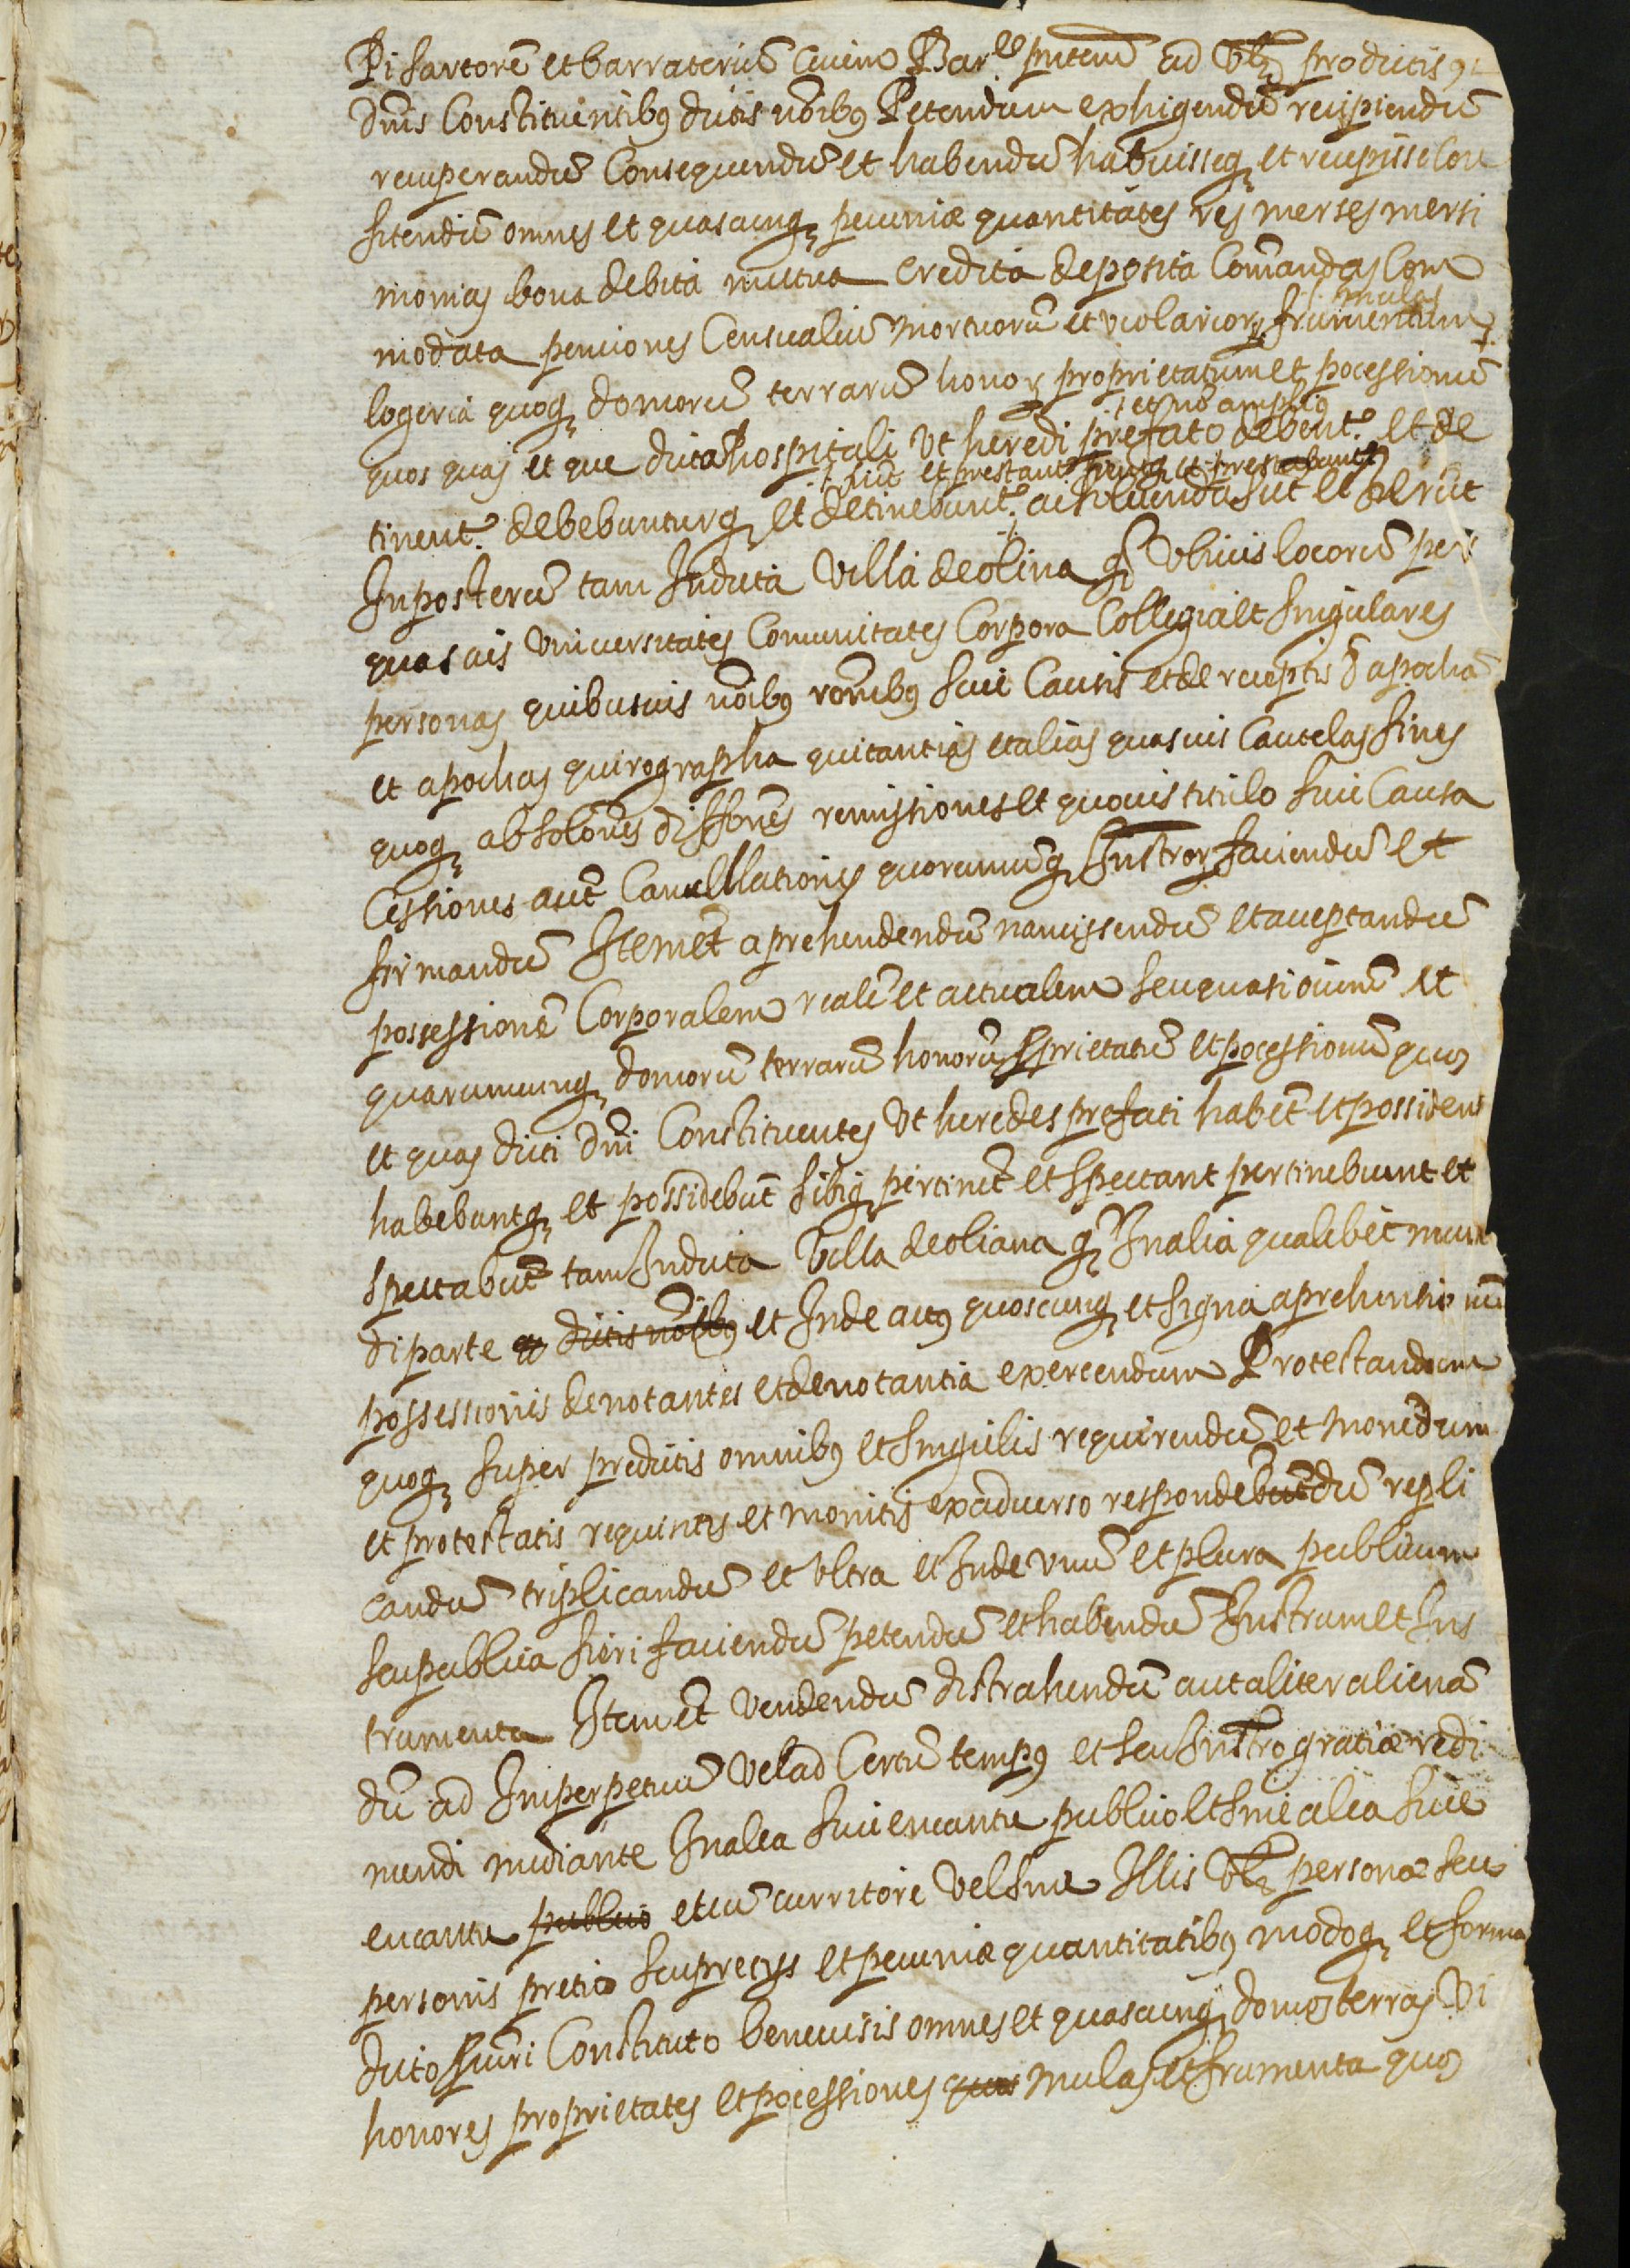 Pi sartorē et barrateriū Civem Bar.e pñtem ad Vlz pro dictis
dn̄is Constituentibꝰ dictis noībꝰ Petendum exhigendū recipiendū
recuperandū Consequendū et habendū habuisseqꝫ et recepisse Con
fitendū omnes et quascunqꝫ pecuniæ quantitates res merses mersi
monias bona debita mutua Credita deposita Comandas Com
mulas
modata penciones Censualiū Mortuorū et violarioꝝ frumentum
logeria quoqꝫ domorū terrarū honoꝝ proprietatum et pocessionū
et nō amplius
quos quas et que dicto hospitali vt heredi prefato debent.r et de
sūt et prestant.r
tinent.r debebunturqꝫ et detinebunt.r ac solvenda sūt et derūt
Inposterū tam In dicta Villa de olina qꝫ Vbivis locorū per
quasvis Vniversitates Comunitates Corpora Collegia et singulares
personas quibusvis noībꝰ roñibꝰ sive Causis et de receptis apocha
et apochas quirographa quitantias et alias quasvis Cautelas fines
quoqꝫ absolōnes diffōnes remissiones et quovis titulo sive Causa
Cessiones aut Cancellationes quorumcunqꝫ Instroꝝ faciendū et
firmandū Item et aprehendendū nanciscendū et acceptandū
possessionē Corporalem realē et actualem seu quasi oīmē et
quarumcunqꝫ domorū terrarū honorū pprietatū et pocessionū quos
et quas dicti dn̄i Constituentes Vt heredes prefati habēt et possident
habebuntqꝫ et possidebūt sibiqꝫ pertinēt et spectant pertinebunt et
spectabūt tam In dicta Villa de oliana qꝫ In alia qualibet mun
di parte dictis noībꝰ et Inde actꝰ quoscunqꝫ et signa aprehensionē
possessionis denotantes et denotantia exercendum Protestandum
quoqꝫ super predictis omnibꝰ et singulis requirendū et monēdum
et protestatis requisitis et monitis ex adverso respondebūtdū repli
candū triplicandū et Vltra et Inde Vnū et plura publicum
seu publica fieri faciendū petendū et habendū Instrum et Ins
trumenta Item et Vendendū distrahendū aut aliter alienā
dū ad Imperpetuū Vel ad Certū tempꝰ et seu Instro gratiæ redi
mendi mediante In alea sive encantu publico et sine alea sive
encantu publico et cū curritore Vel sine Illis Vlz personæ seu
personis pretio seu pretys et pecuniæ quantitatibꝰ modoqꝫ et forma
dicto Constituto benevisis omnes et quascunqꝫ domos terras Vi
honores proprietates et pocessiones quas mulas et frumenta quos